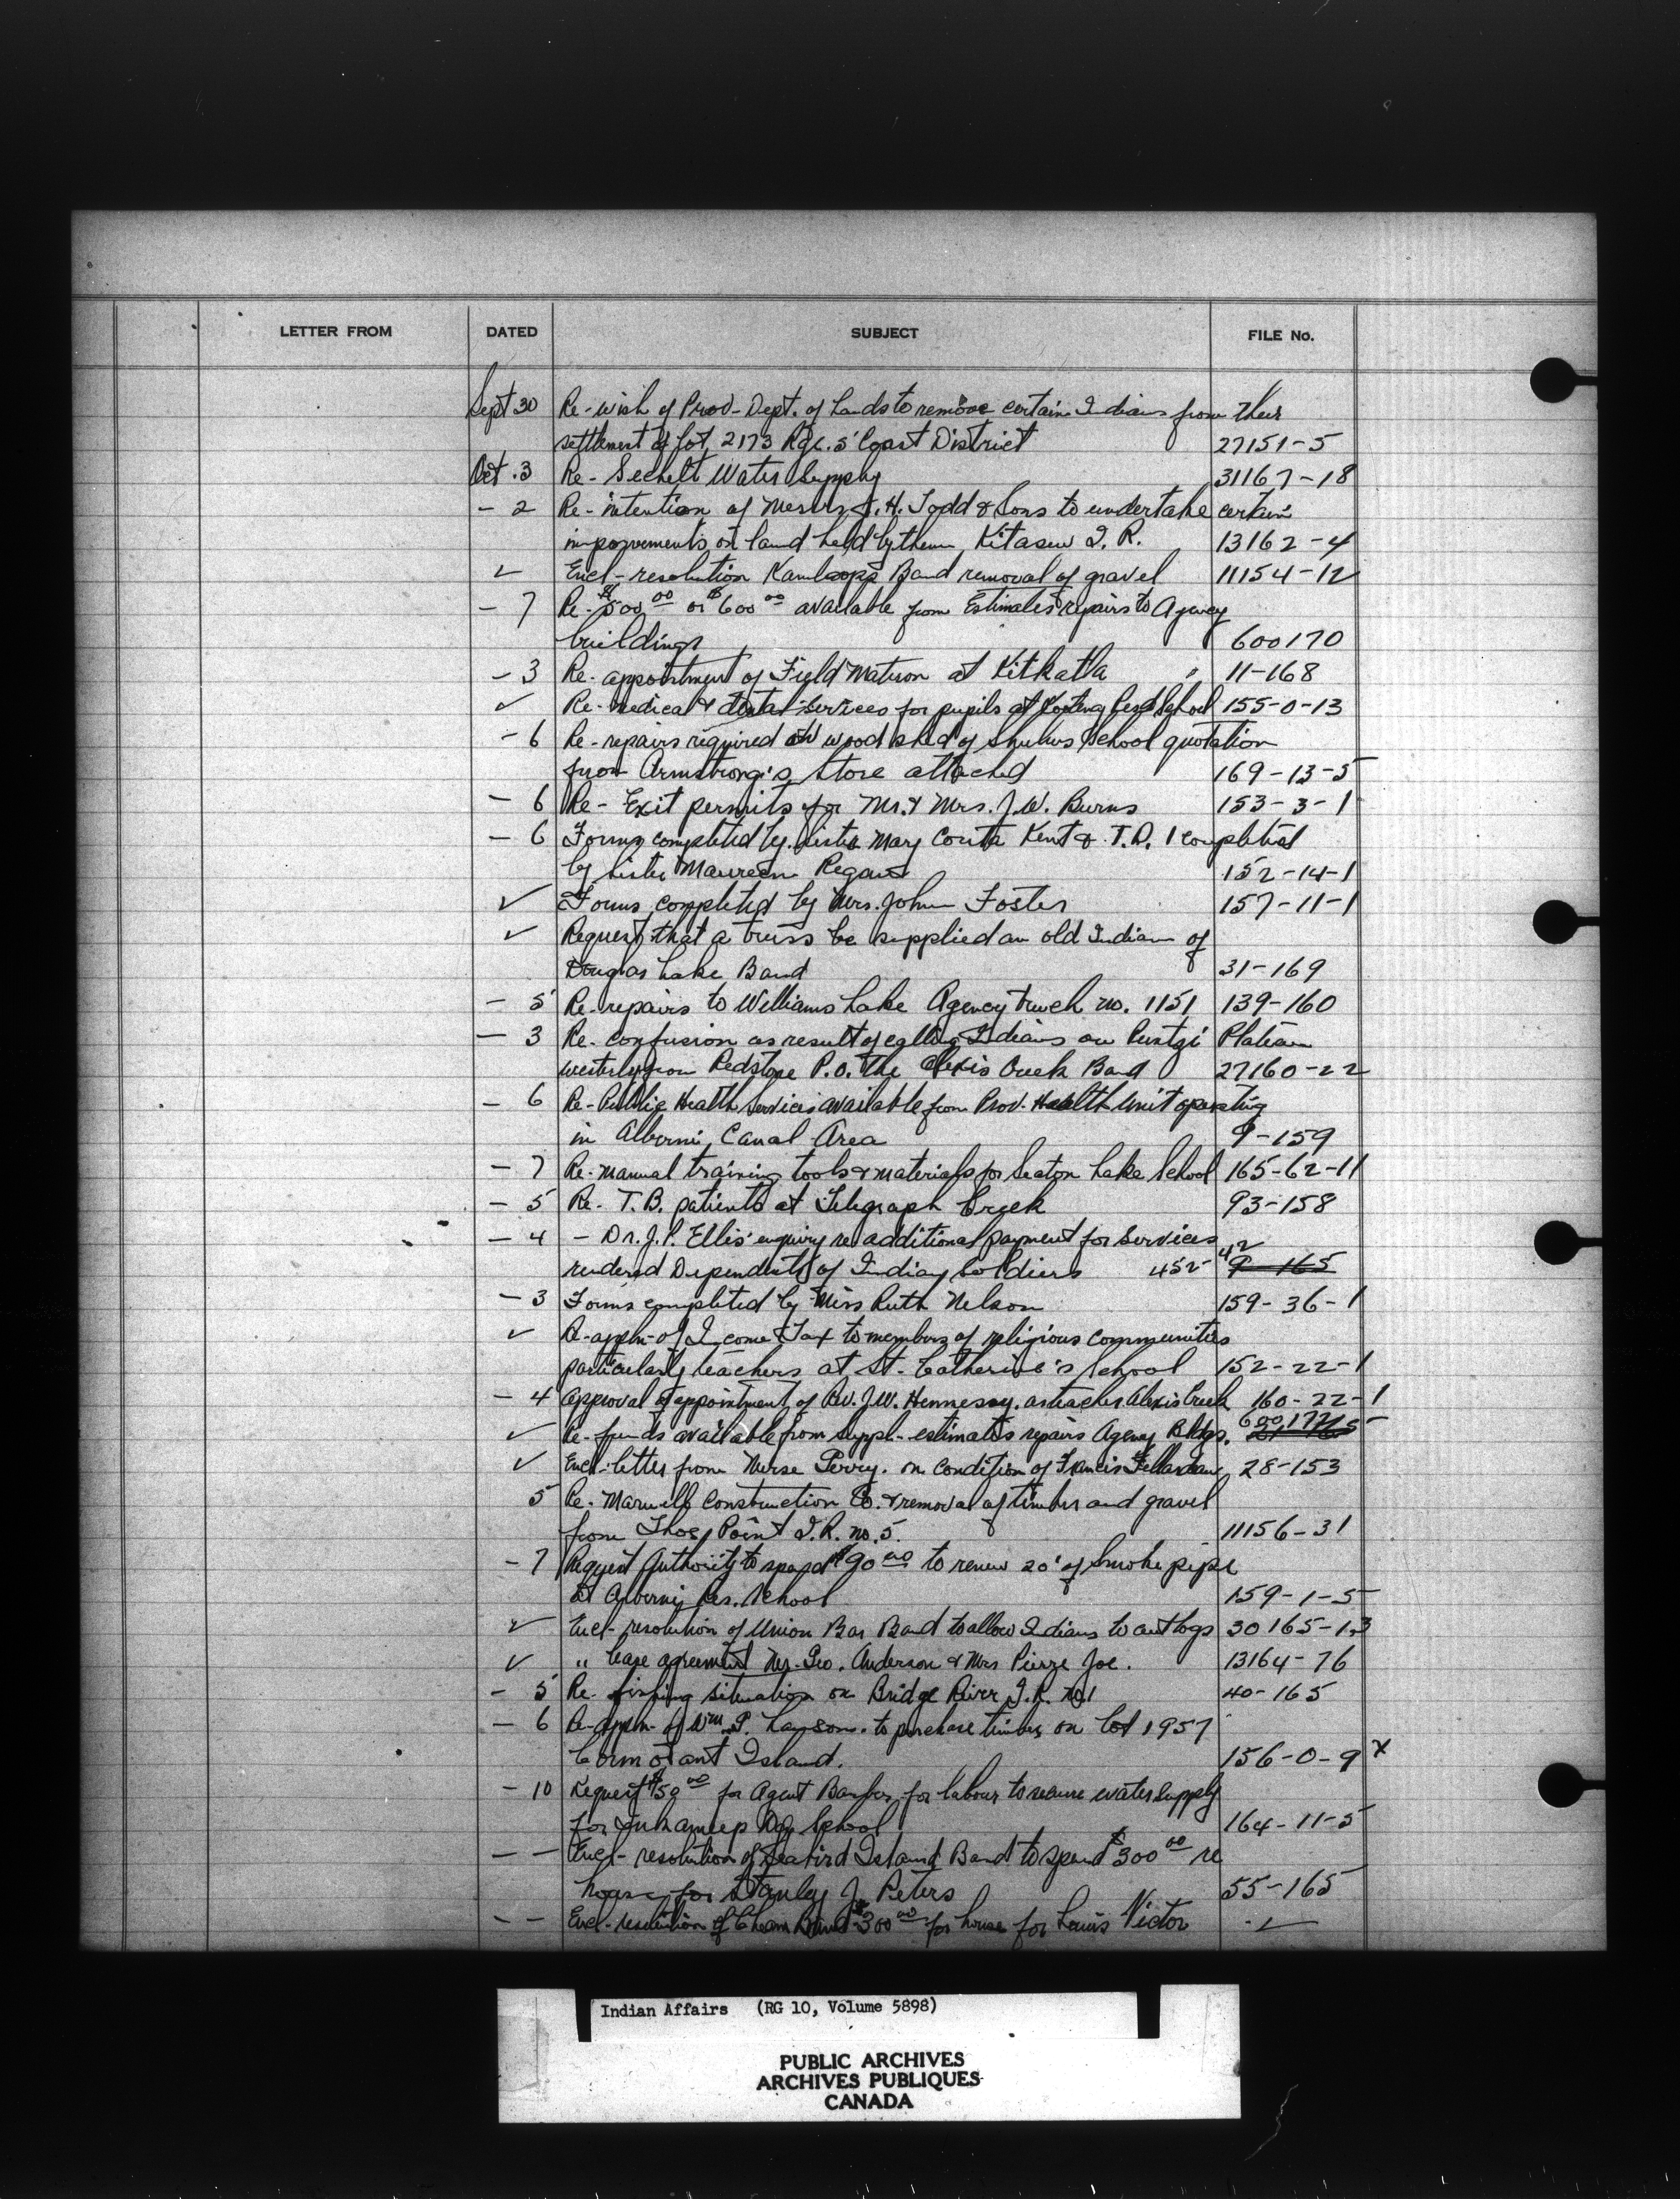 LETTER FROM DATED SUBJECT FILE No.
Sept 30 Re- wish of Prov- Dept. of Lands to remove certain Indians from their
settlement of Lot 2173 Rge. 5 Coast District 27151-5
Oct. 3 Re- Sechelt Water Supply 31167-18
- 2 Re- intention of Messrs J. H. Todd & Sons to undertake certain
improvements on land held by them Kitasew I. R. 13162-4
✓ Encl- resolution Kamloops Band removal of gravel 11154-12
- 7 Re- $500 00 or $600 00 available from Estimates repairs to Agency
buildings 600170
- 3 Re- appointment of Field Matron at Kitkatla " 11-168
✓ Re- medical & dental services for pupils at Kootenay Resd School 155-0-13
- 6 Re- repairs required on wood shed of Shulus School quotation
from Armstrong's Store attached 169-13-5
- 6 Re- Exit permits for Mr. & Mrs. J.W. Burns 153-3-1
- 6 Forms completed by Sister Mary Corita Kent & T.D. 1 completed
by Sister Maureen Regan 152-14-1
✓ Forms completed by Mrs. John Foster 157-11-1
✓ Request that a truss be supplied an old Indian of
Douglas Lake Band 31-169
- 5 Re- repairs to Williams Lake Agency truck no. 1151 139-160
- 3 Re- confusion as result of calling Indians on Puntzi Plateau
westerly from Redstone P.O. the Alexis Creek Band 27160-22
- 6 Re- Public Health Services available from Prov. Health Unit operating
in Alberni Canal Area 9-159
- 7 Re- manual training tools & materials for Seaton Lake School 165-62-11
- 5 Re- T.B. patients at Telegraph Creek 93-158
- 4 - Dr. J.P. Ellis' enquiry re additional payment for services
rendered Dependents of Indian Soldiers 452- 42 9-165
- 3 Forms completed by Miss Ruth Nelson 159-36-1
✓ Re- appln- of Income Tax to members of religious communities
particularly teachers at St. Catherine's School 152-22-1
- 4 Approval of appointment of Rev. J.W. Hennessy. as teacher Alexis Creek 160-22-1
✓ Re- funds available from suppl- estimates repairs Agency Bldgs.
✓ Encl- letter from Nurse Perry. on condition of Francis 28-153
5 Re- Marwell Construction Co. & removal of timber and gravel
from Point I.R. no. 5. 11156-31
- 7 Request Authority to spend $90 00 to renew 20' of smoke pipe
at Alberni Res. School 159-1-5
✓ Encl- resolution of Union Bar Band to allow Indians to cut logs 30165-13
✓ " lease agreement Mr. Geo. Anderson & Mrs Pierre Joe. 13164-76
- 5 Re- fishing situation on Bridge River I.R. no 1 40-165
- 6 Re- appln- of Wm P. to purchase timber on Lot 1957
Cormorant Island. 156-0-9 x
- 10 Request $50 00 for Agent Barber for labour to secure water supply
for Inkameep Day School 164-11-5
- - Encl- resolution of Seabird Island Band to spend $300 00 re
house for Stanley J. Peters 55-165
- - Encl- resolution of Cheam Band $300 00 for house for Louis Victor ✓
Indian Affairs (RG 10, Volume 5898)
PUBLIC ARCHIVES
ARCHIVES PUBLIQUES
CANADA